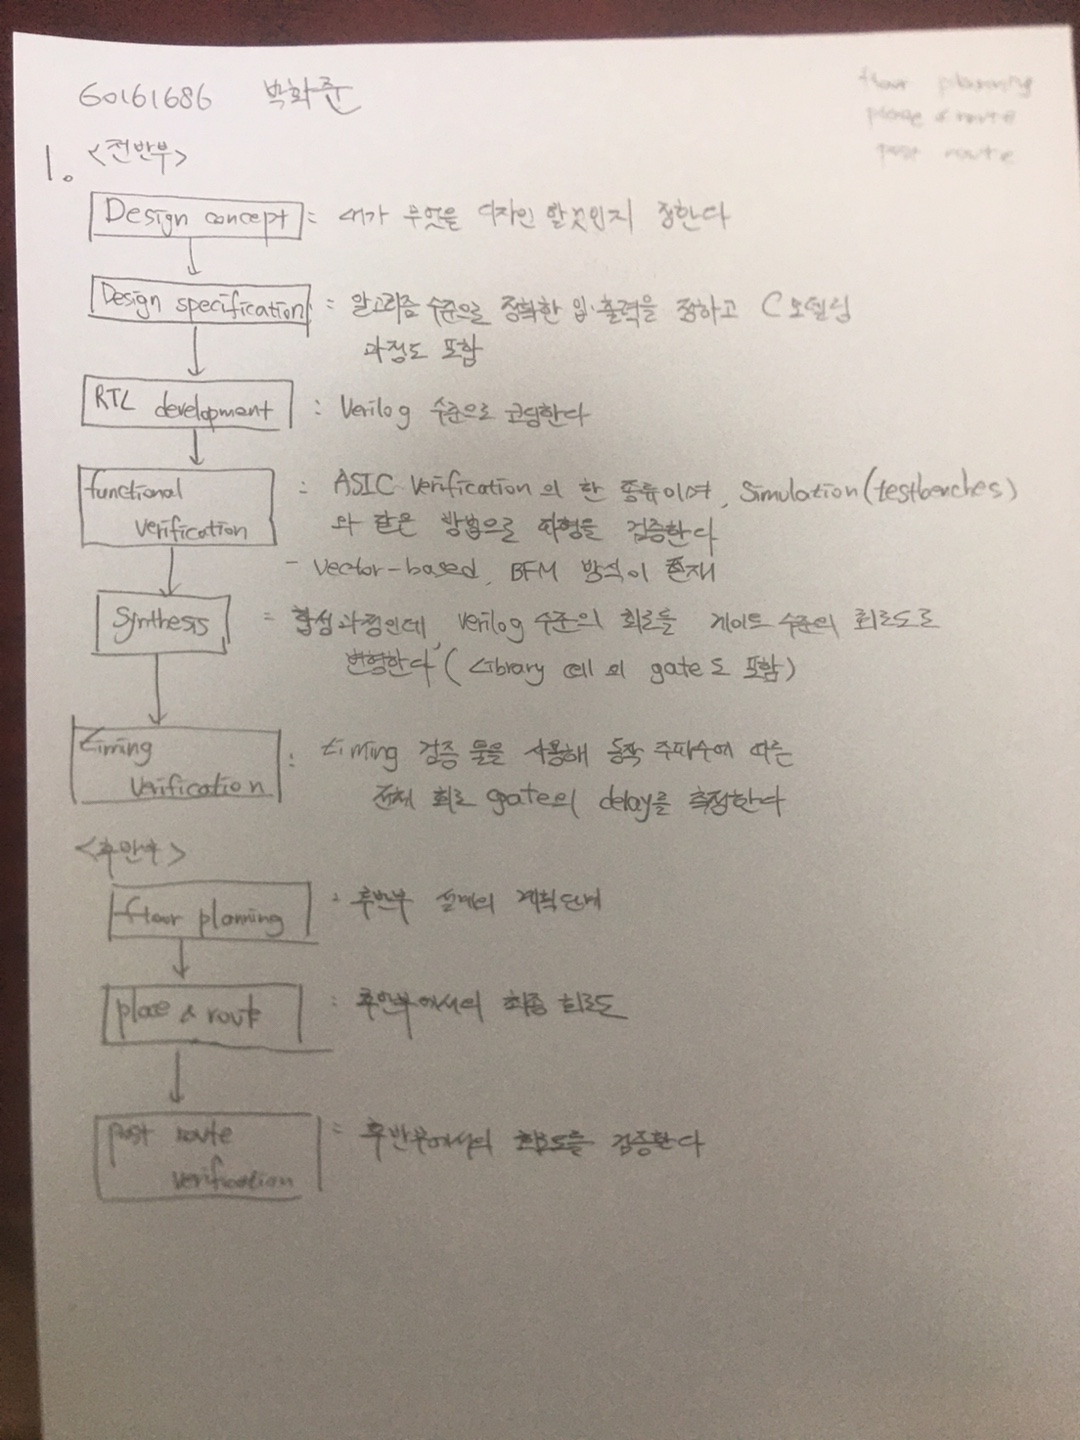 60161686 박화준
floor planning
place & route
post route
1. <전반부>
Design concept : 내가 무엇을 디자인 할것인지 정한다
Design specification : 알고리즘 수준으로 정확한 입·출력을 정하고 C 모델링
과정도 포함
RTL development : Verilog 수준으로 코딩한다
functional : ASIC Verification의 한 종류이며, Simulation(testbenches)
verification 와 같은 방법으로 파형을 검증한다
- vector-based, BFM 방식이 존재
Synthesis : 합성과정인데, verilog 수준의 회로를 게이트 수준의 회로도로
변형한다 (Library cell 의 gate도 포함)
timing : timing 검증 툴을 사용해 동작 주파수에 따른
verification 전체 회로 gate의 delay를 측정한다
<후반부>
floor planning : 후반부 설계의 계획단계
place & route : 후반부에서의 최종 회로도
post route : 후반부에서의 회로도를 검증한다
verification